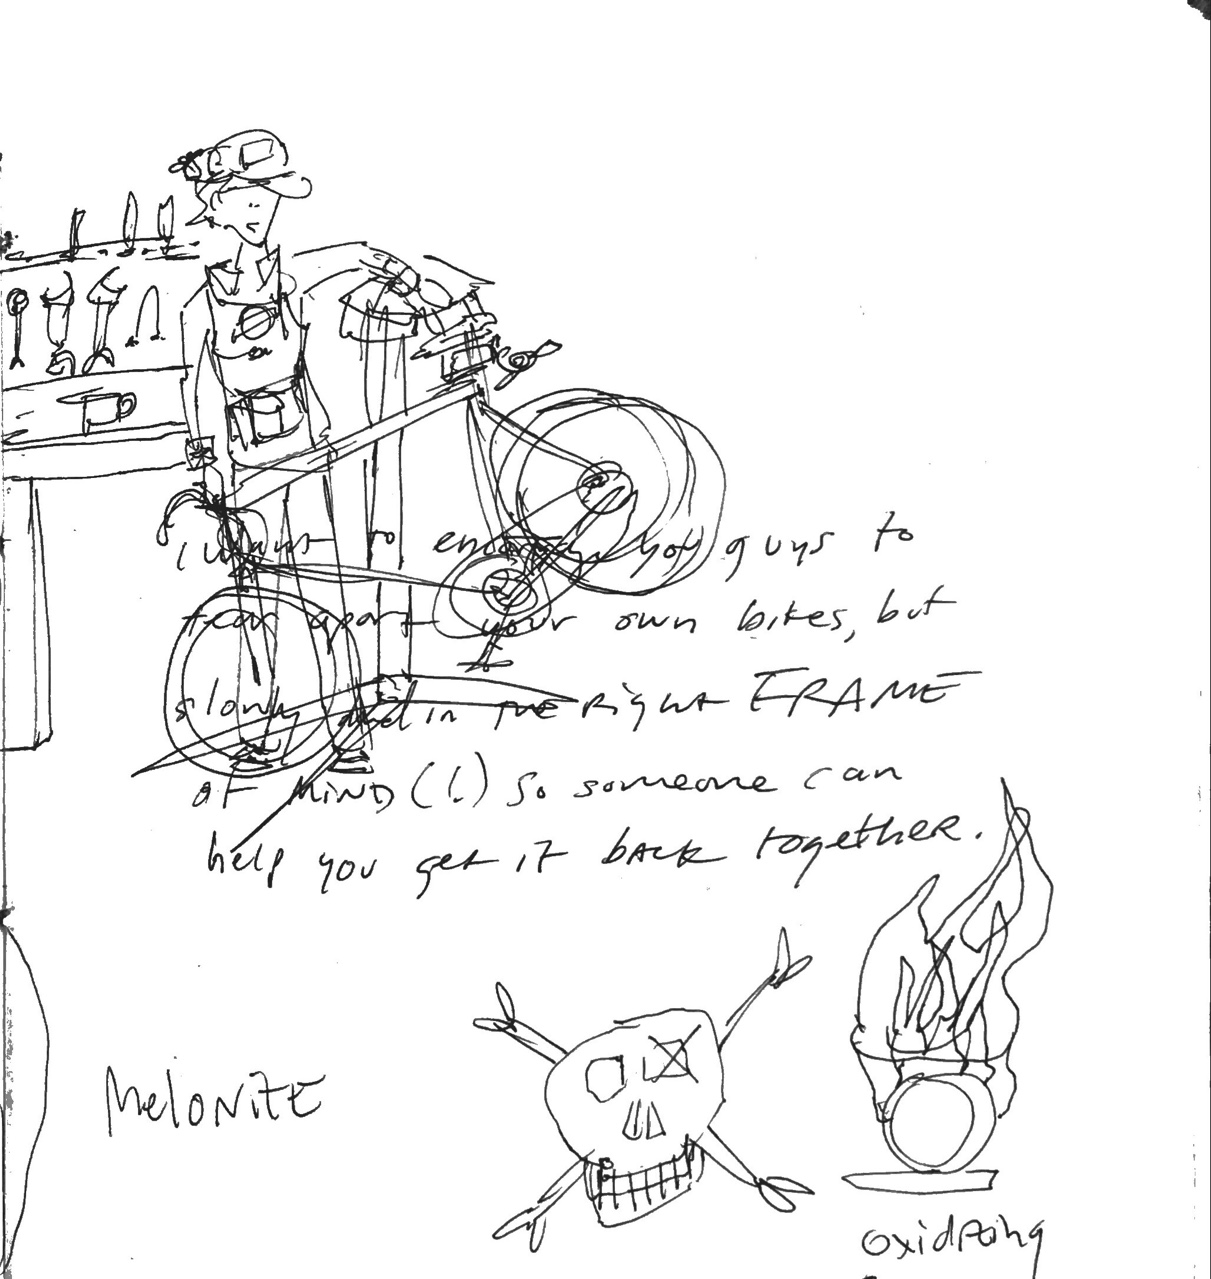 to encourage you guys to
tear apart your own bikes, but
slowly and in the Right FRAME
of MiND (!) so someone can
help you get it back together.
MeloNiTE
oxidizing